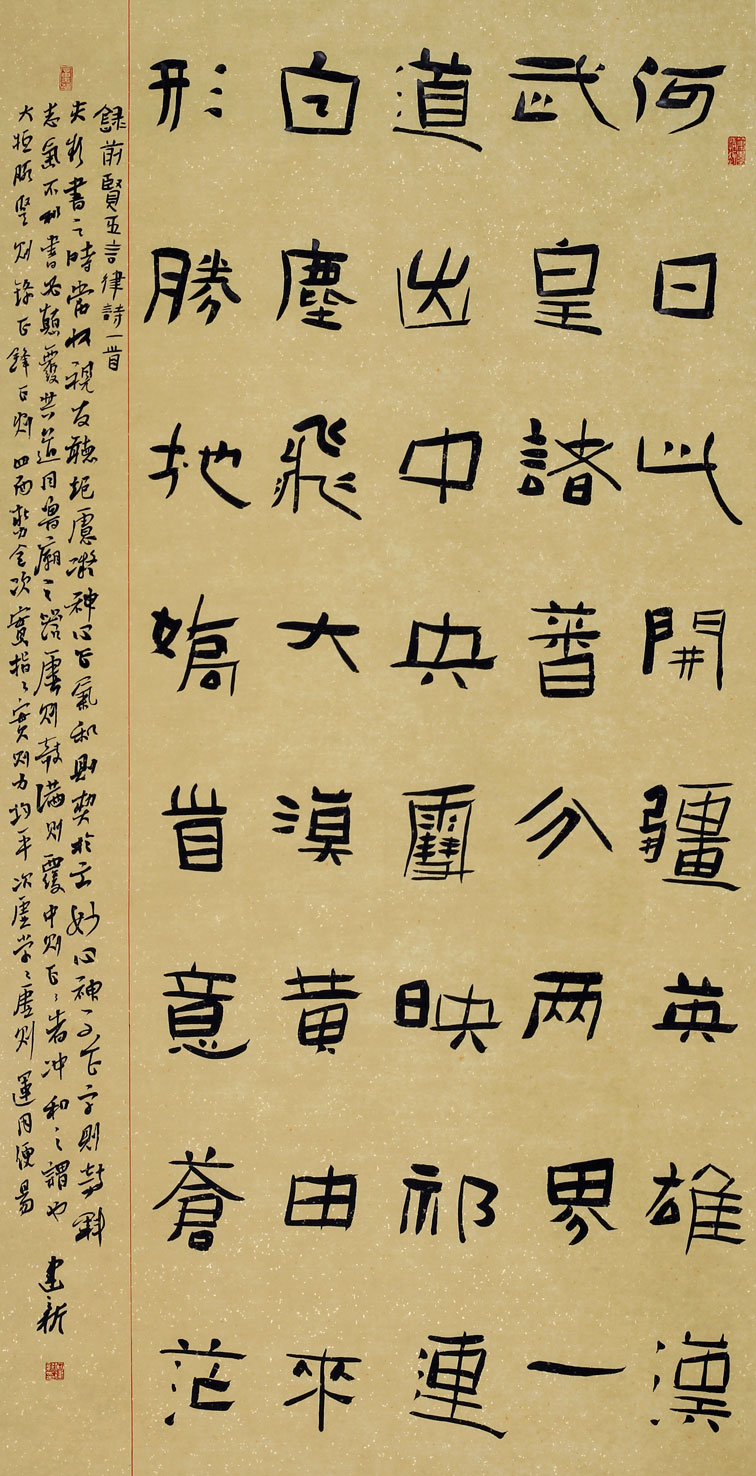 何日此開疆英雄漢
武皇諸蕃分兩界一
道出中央雪映祁連
白塵飛大漠黃由來
形勝地矯首意蒼茫
錄前賢五言律詩一首
夫欲書之時當收視反聽絕慮凝神心正氣和則契於玄妙心神不正字則攲斜
志氣不和書必顛覆其道同魯廟之器虛則攲滿則覆中則正々者沖和之謂也
大抵腕豎則鋒正鋒正則四面勢全次實指々實則力均平次虛掌々虛則運用便易
建新